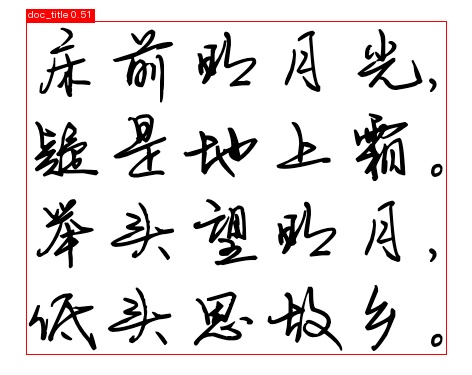 doc_title 0.51
床前明月光，
疑是地上霜。
举头望明月，
低头思故乡。